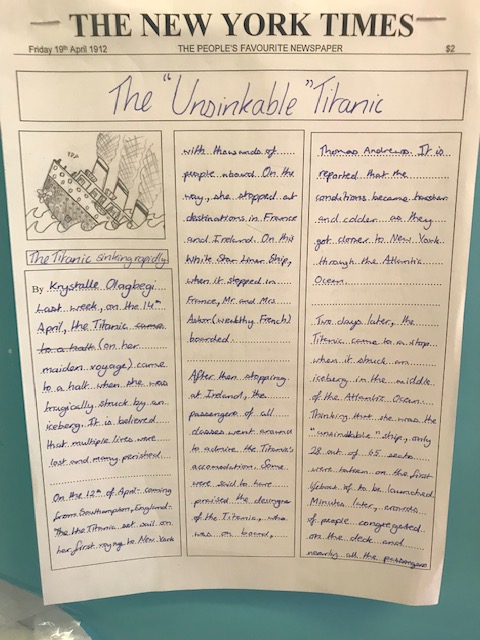 THE NEW YORK TIMES
Friday 19th April 1912
THE PEOPLE'S FAVOURITE NEWSPAPER
$2
The "Unsinkable" Titanic
The Titanic sinking rapidly
By Krystalle Olagbegi
Last week, on the 14th
April, the Titanic came
to a halt (on her
maiden voyage) came
to a halt when she was
tragically struck by an
iceberg. It is believed
that multiple lives were
lost and many perished.
On the 12th of April coming
from Southampton, England
The the Titanic set sail on
her first voyage to New York
with thousands of
people aboard. On the
way, she stopped at
destinations in France
and Ireland. On this
White Star Liner Ship,
when it stopped in
France, Mr and Mrs
Astor (wealthy French)
boarded.
After then stopping
at Ireland, the
passengers of all
classes went around
to admire the Titanic's
accomodation. Some
were said to have
praised the designer
of the Titanic, who
was on board,
Thomas Andrews. It is
reported that the
conditions became
and colder as they
got closer to New York
through the Atlantic
Ocean.
Two days later, the
Titanic came to a stop
when it struck an
iceberg in the middle
of the Atlantic Ocean.
Thinking that she was the
"unsinkable" ship, only
28 out of 65 seats
were taken on the first
lifeboat to be launched.
Minutes later, crowds
of people congregated
on the deck and
nearly all the passengers